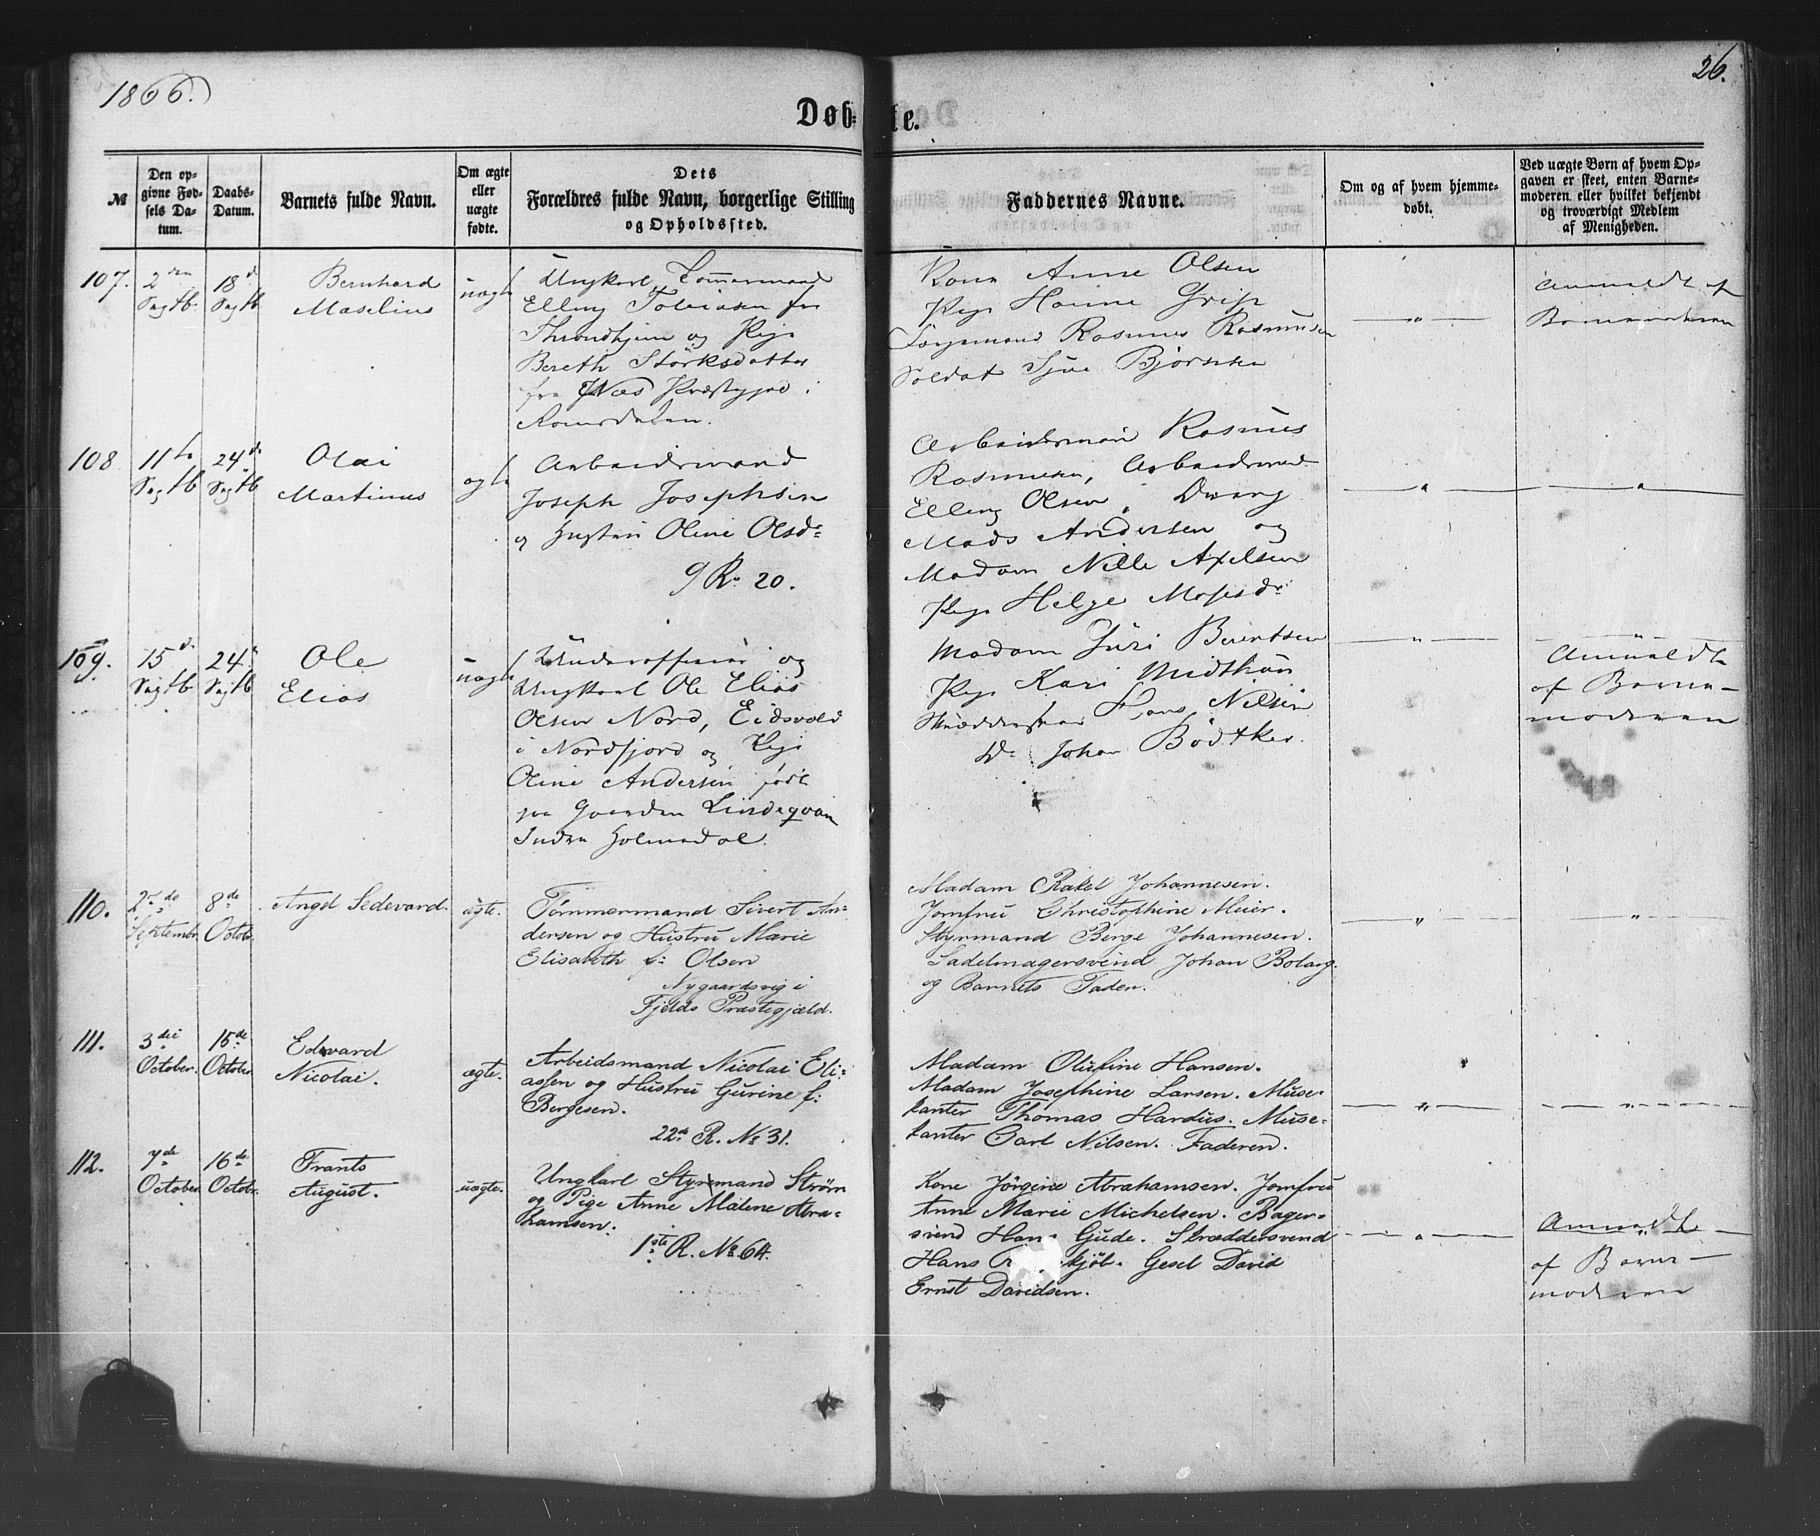 1866.
26.
Døbte.
№
Den opgivne Fødsels Datum.
Daabs-Datum.
Barnets fulde Navn.
Om ægte eller uægte fødte.
Dets
Forældres fulde Navn, borgerlige Stilling
og Opholdssted.
Faddernes Navne.
Om og af hvem hjemmedøbt.
Ved uægte Børn af hvem Op-
gaven er skeet, enten Barne-
moderen eller hvilket bekjendt
og troværdigt Medlem
af Menigheden.
107.
2den
18d
Bernhard
uægte
Ungkarl Tømmermand
Elling Tobiasen fra
Throndhjem og Pige
Bereth Störksdatter
fra Næs Præstegjæld i
Romsdalen.
Kone Anne Olsen
Pige Hanne Grip
Rasmus Rasmusen
Soldat Bjørsen
Anmeldt af
Barnemoderen
108
11te
24d
Olai
Martinus
ægte
Arbeidsmand
Joseph Josephsen
og Hustru Oline Olsd:
9 R. 20.
Arbeidsman Rasmus
Rasmusen, Arbeidsmand
Elling Olsen, Dreng
Mads Andersen og
Madam Nille Axelsen
Pige Helge Mosesd:
109.
15d
24d
Ole
Elias
uægte
Underofficier og
Ungkarl Ole Elias
Olsen Nord, Eidsvold
i Nordfjord og Pige
Oline Andersen født
paa Gaarden
Indre Holmedal.
Madam Guri Berentsen
Pige Kari Midthun
Hans Nilsen
Do Johan Bødtker.
Anmeldt
af Barne-
moderen
110.
Septembr.
8de
Octobr.
Angel Sedevard.
ægte.
Tømmermand Sivert An-
dersen og Hustru Marie
Elisabeth f: Olsen
Nygaardsvig i
Fjelds Præstegjæld.
Madam Rakel Johannesen.
Jomfru Christophine Meier.
Styrmand Berge Johannesen.
Sadelmagersvend Johan Bolarg.
og Barnets Fader.
111.
3die
October.
15de
October
Edward
Nicolai.
ægte.
Arbeidsmand Nicolai Eli-
assen og Hustru Gurine f:
Bergesen.
22de R. No 31.
Madam Olufine Hansen.
Madam Josephine Larsen. Muse-
kanter Thomas Hardus. Muse-
kanter Carl Nilsen. Faderen.
112.
7de
October.
16de
Octobr.
Frants
August.
uægte.
Ungkarl Styrmand Strøm
og Pige Anne Malene Abra-
hamsen.
1ste R. No 64.
Kone Jørgine Abrahamsen. Jomfru
Anne Marie Michelsen. Bager-
svend Hans Gude. Skræddersvend
Hans Gesel David
Ernst Davidsen.
Anmeldt
af Barne-
moderen